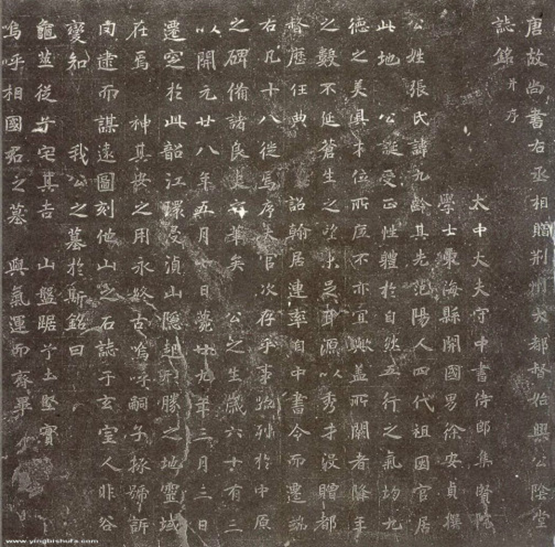 唐故尚書右丞相贈荊州大都督始興公陰堂
誌銘并序
太中大夫守中書侍郎集賢院
學士東海縣開國男徐安貞撰
公姓張氏諱九齡其先范陽人四代祖因官居
此地 公誕受正性體於自然五行之氣均九
德之美俱才位所底不亦宜歟蓋所闕者降年
之數不延蒼生之望未足耳源以秀才沒贈都
督歷任典 詔翰居連率自中書令而遷端
右凡十八徙焉序夫官次存乎事跡列於中原
之碑備諸良史之筆矣 公之生歲六十有三
以開元廿八年五月七日薨廿九年三月三日
遷窆於此韶江環浸湞山隱起形勝之地靈域
在焉 神其安之用永終古嗚呼嗣子拯號訴
罔逮而謀遠圖刻他山之石誌于玄室人非谷
變知 我公之墓於斯銘曰
龜筮從兮宅其吉 山盤踞兮土堅實
嗚呼相國君之墓 與氣運而齊畢
www.yingbishufa.com